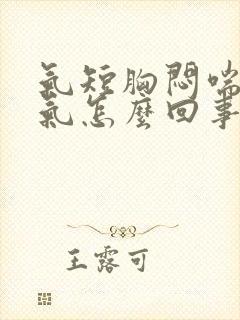 氣短胸悶喘
氣怎麼回事
王露可